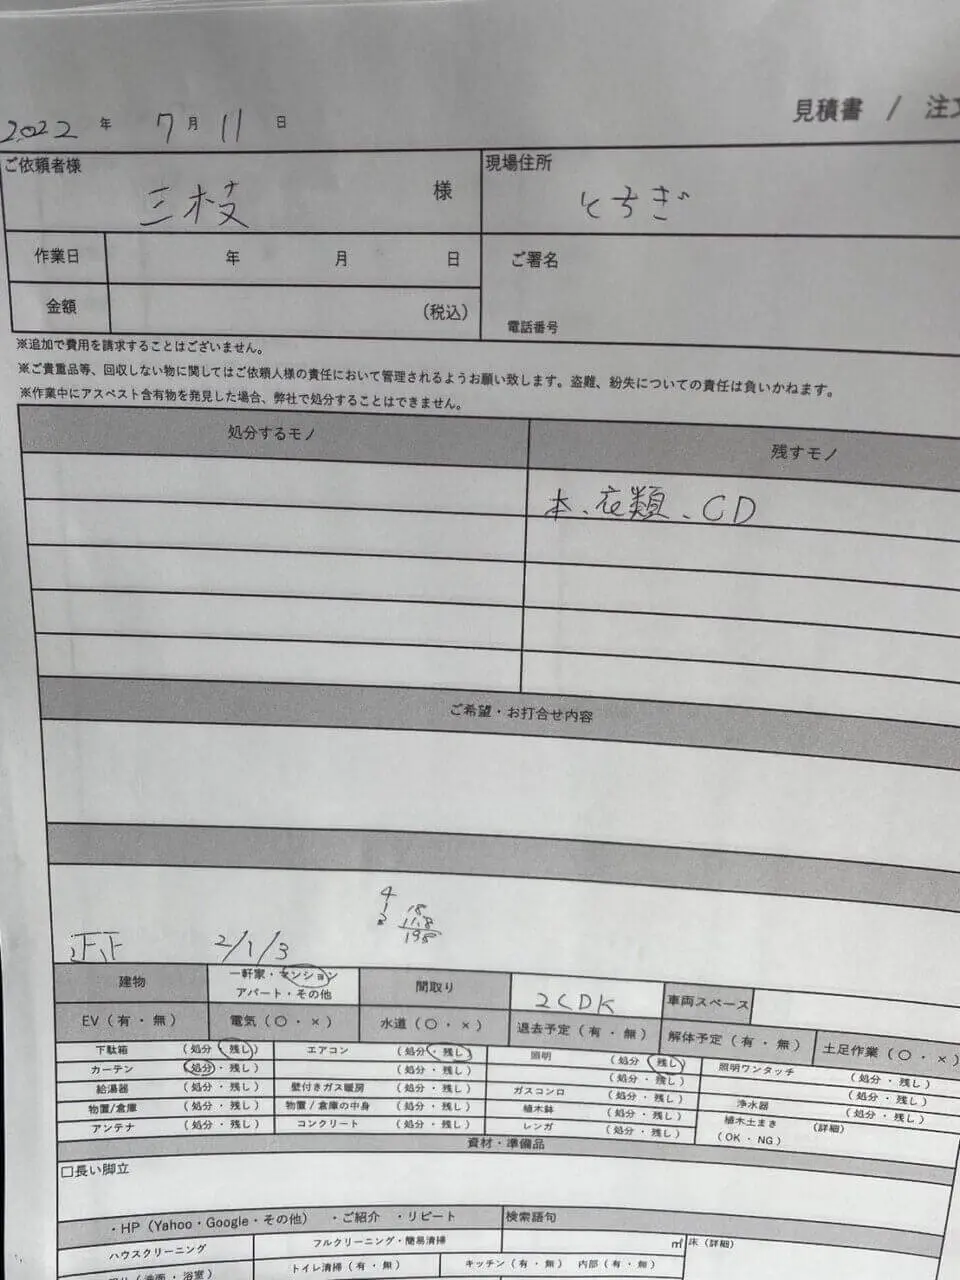 見積書 / 注文
2022 年 7 月 11 日
ご依頼者様
三枝 様
現場住所
とちぎ
作業日 年 月 日
ご署名
金額 (税込)
電話番号
※追加で費用を請求することはございません。
※ご貴重品等、回収しない物に関してはご依頼人様の責任において管理されるようお願い致します。盗難、紛失についての責任は負いかねます。
※作業中にアスベスト含有物を発見した場合、弊社で処分することはできません。
処分するモノ 残すモノ
本、衣類、CD
ご希望・お打合せ内容
4
1
18
11.8
198
正正 2/1/3
建物 一軒家・マンション
アパート・その他
間取り 2CDK 車両スペース
EV(有・無) 電気(○・×) 水道(○・×) 退去予定(有・無) 解体予定(有・無) 土足作業(○・×)
下駄箱 (処分・残し) エアコン (処分・残し) 照明 (処分・残し) 照明ワンタッチ (処分・残し)
カーテン (処分・残し) (処分・残し) (処分・残し)
給湯器 (処分・残し) 壁付きガス暖房 (処分・残し) ガスコンロ (処分・残し) 浄水器 (処分・残し)
物置/倉庫 (処分・残し) 物置/倉庫の中身 (処分・残し) 植木鉢 (処分・残し) 植木土まき (詳細)
アンテナ (処分・残し) コンクリート (処分・残し) レンガ (処分・残し) (OK・NG)
資材・準備品
□長い脚立
・HP(Yahoo・Google・その他) ・ご紹介 ・リピート 検索語句
ハウスクリーニング フルクリーニング・簡易清掃 ㎡ 床(詳細)
トイレ清掃(有・無) キッチン(有・無) 内部(有・無)